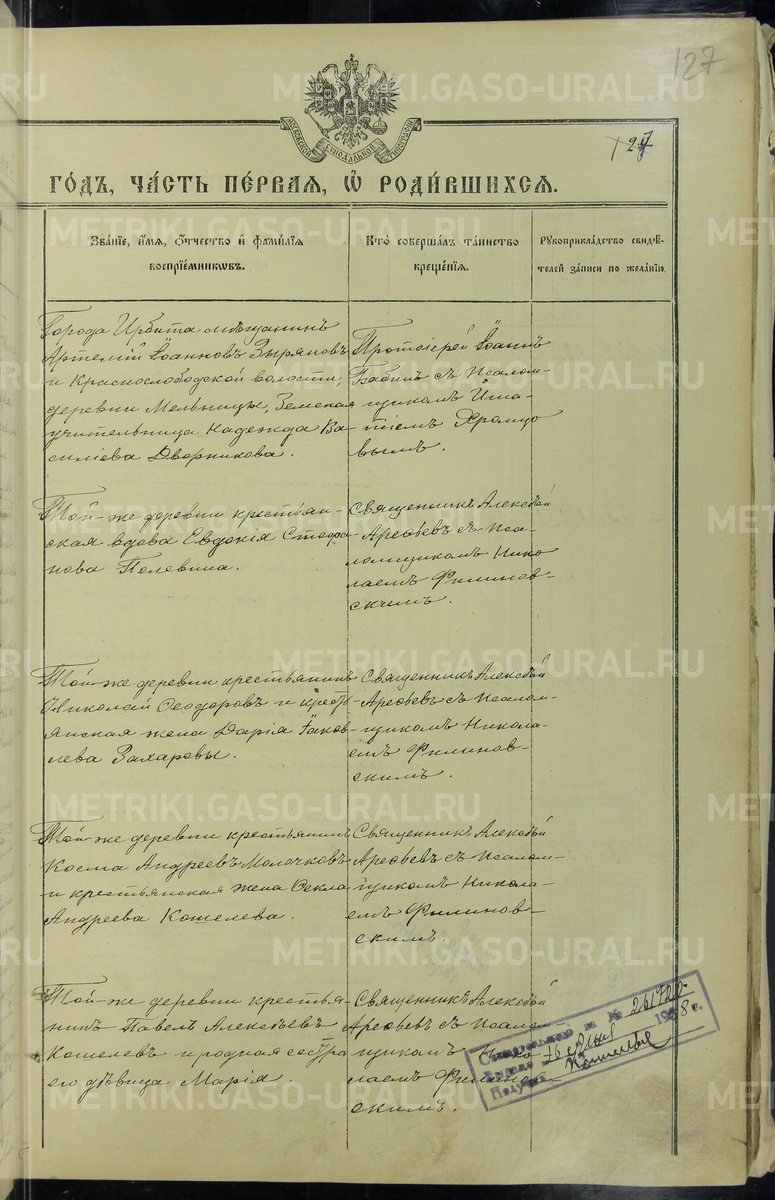 127
127
МОСКОВСКОЙ СѴНОДАЛЬНОЙ ТИПОГРАФІИ
ГО́ДЪ, ЧА́СТЬ ПЕ́РВАЯ, Ѡ҆ РОДИ́ВШИХСЯ.
Зва́нїе, и҆́мя, о҆́тчество и҆ фами́лїя
воспрїе́мникѡвъ.
Кто̀ соверша́лъ та́инство
креще́нїя.
Рꙋкоприкла́дство свидѣ́-
телей за́писи по жела́нїю.
Города Ирбита мѣщанинъ
Артемій Іоанновъ Зыряновъ
и Краснослободской волости,
деревни Мельницы, Земская
учительница Надежда Ва-
силіева Дворникова.
Протоіерей Іоаннъ
Бабинъ съ Псалом-
щикомъ Игна-
тіемъ Храмцо
вымъ.
Той-же деревни крестьян-
ская вдова Евдокія Стефа-
нова Пелевина.
Священникъ Алексѣй
Арефьевъ съ Псал-
ломщикомъ Нико
лаемъ Филинов-
скимъ.
Той-же деревни крестьянинъ
Николай Ѳеодоровъ и кресть-
янская жена Дарія Іаков-
лева Захаровы.
Священникъ Алексѣй
Арефьевъ съ Псалом-
щикомъ Никола-
емъ Филинов-
скимъ.
Той-же деревни крестьянинъ
Косма Андреевъ Молочковъ
и крестьянская жена Ѳекла
Андреева Кошелева.
Священникъ Алексѣй
Арефьевъ съ Псалом-
щикомъ Никола-
емъ Филинов-
скимъ.
Той-же деревни крестья-
нинъ Павелъ Алексѣевъ
Кошелевъ и родная сестра
его дѣвица Марія.
Священникъ Алексѣй
Арефьевъ съ Псалом-
щикомъ Нико
лаемъ Филинов-
скимъ.
за № 261720
1938 г.
METRIKI.GASO-URAL.RU